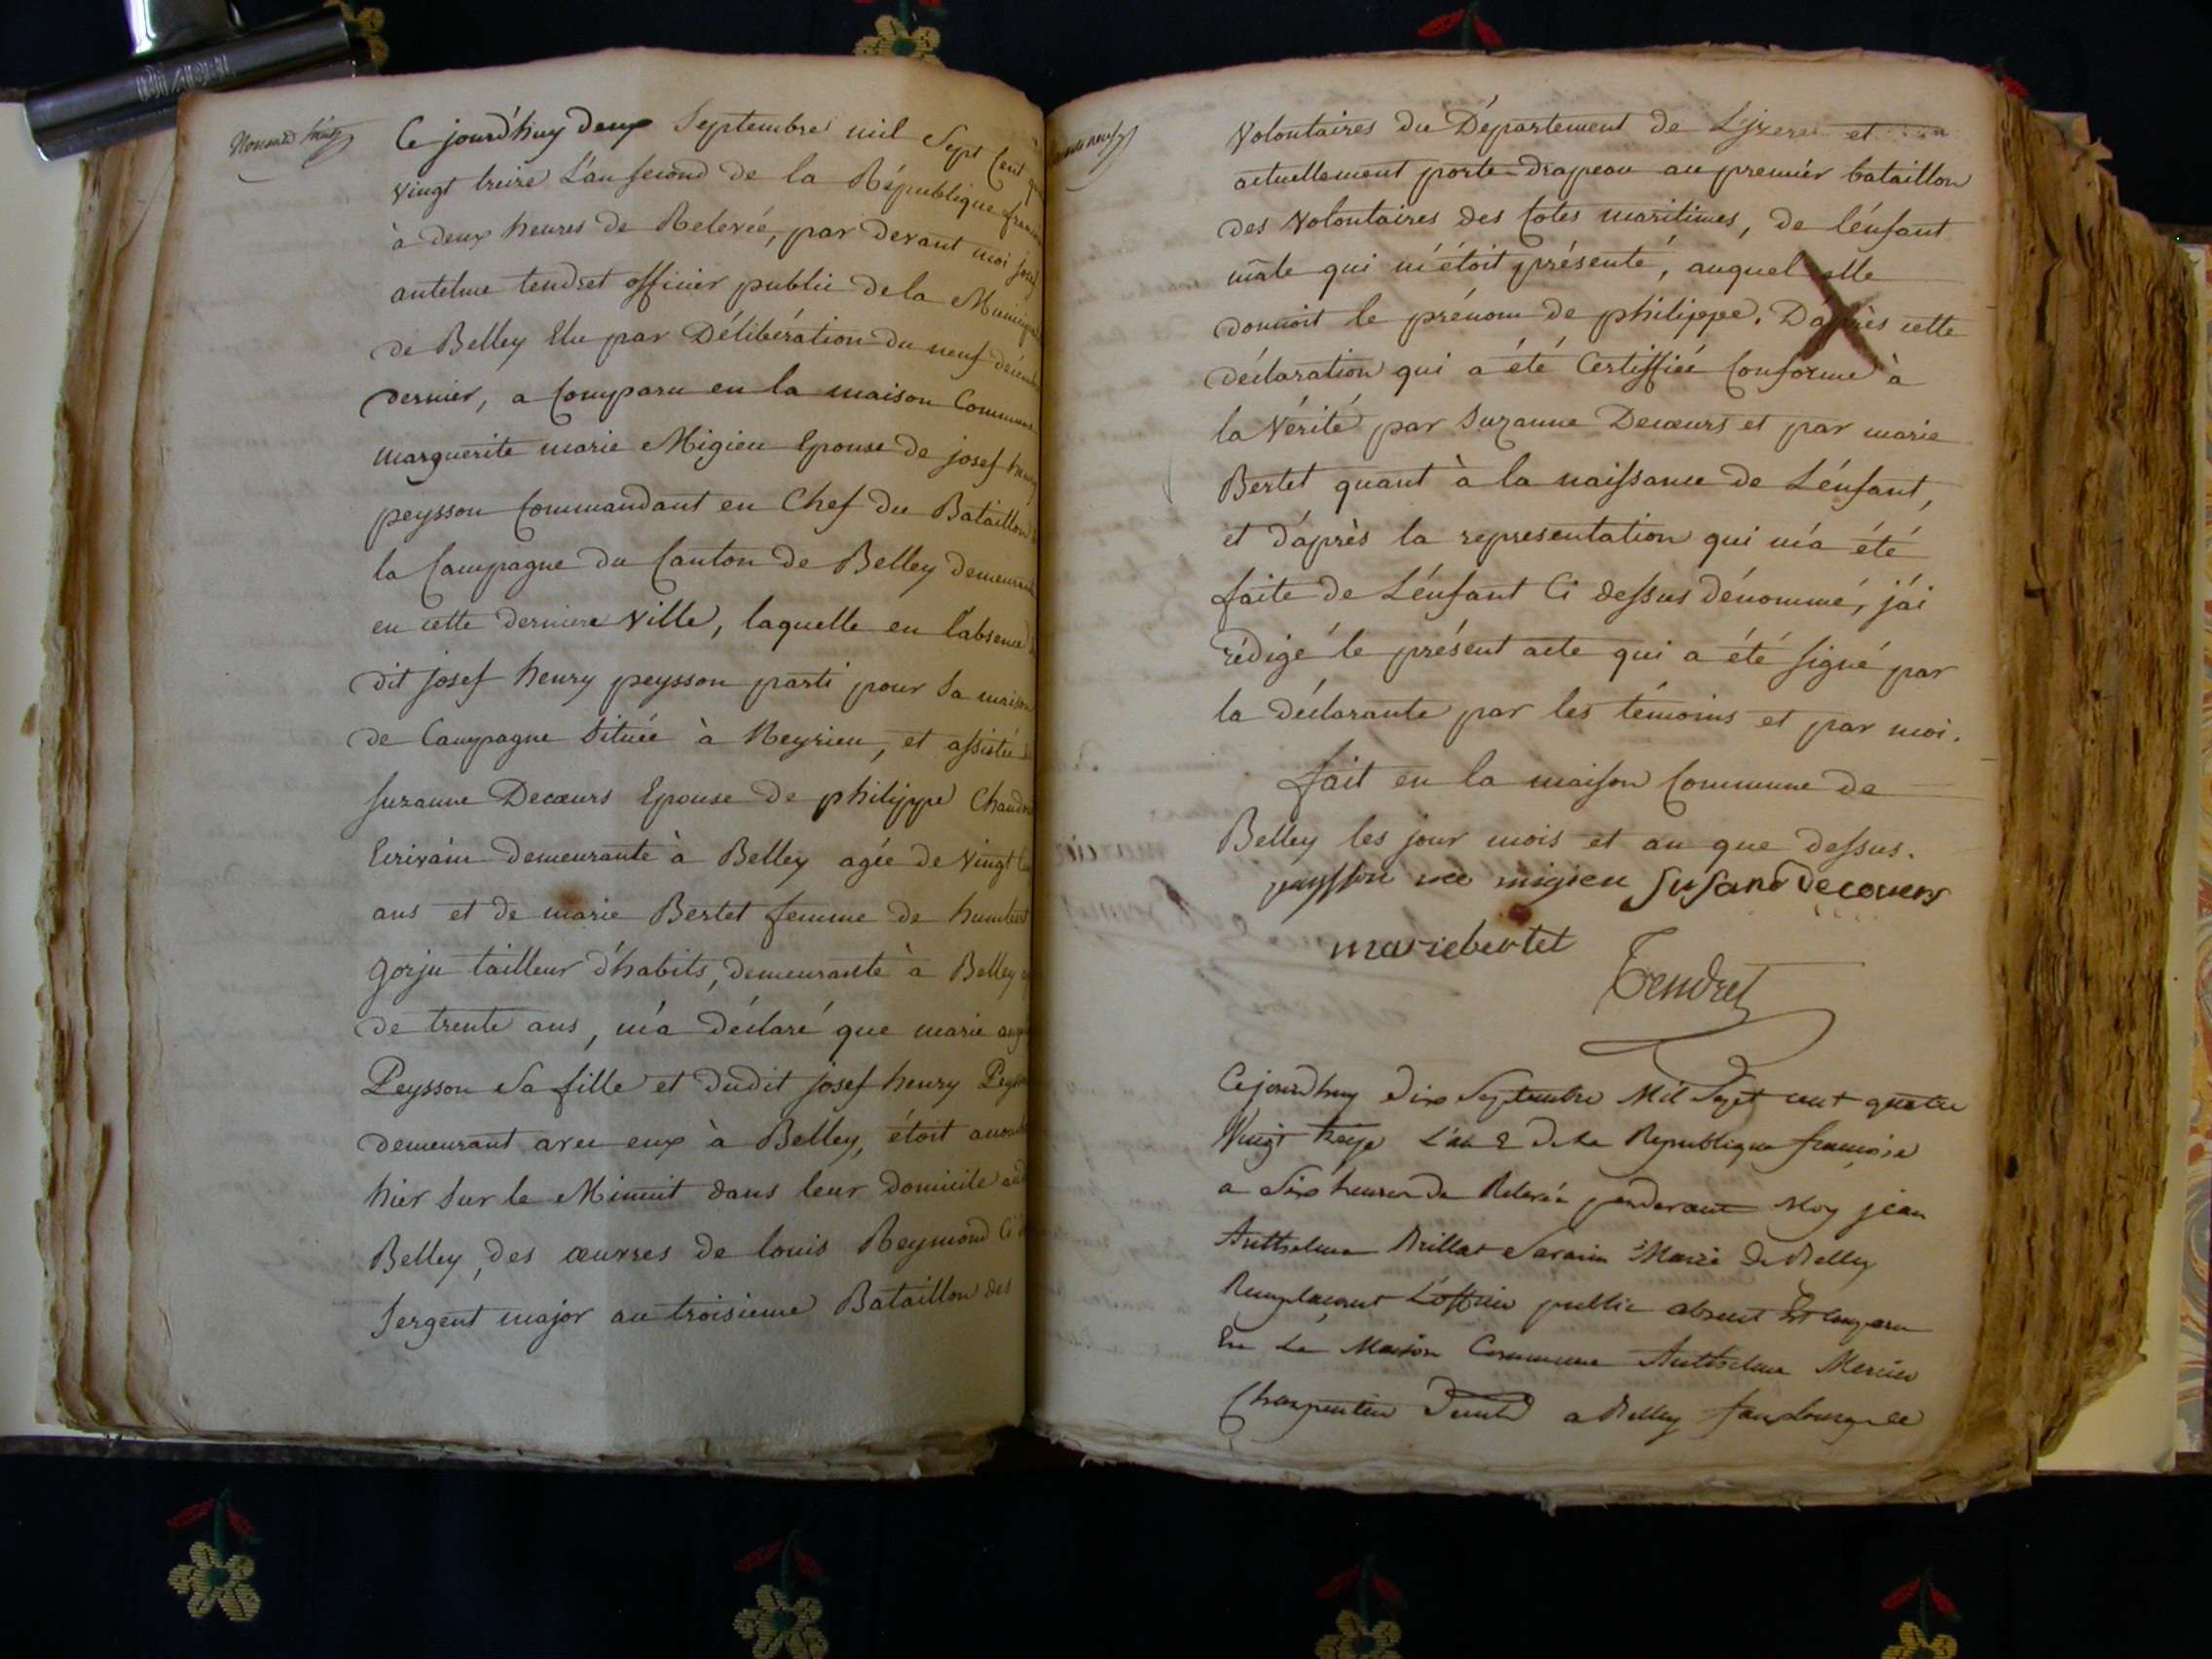 Ce jourd'huy deux Septembre mil Sept Cent
vingt treize L'an second de la République
à deux heures de Relevée, par devant moi
antelme tendret officier public de la
de Belley Elu par Délibération du neuf
dernier, a Comparu en la maison Commune
marguerite marie Migieu Epouse de josef henry
peysson Commandant en Chef du Bataillon
la Campagne du Canton de Belley demeurant
en cette derniere Ville, laquelle en l'absence
dit josef henry peysson parti pour sa maison
de Campagne Située à Reyrieu, et assistée
suzanne Decœurs Epouse de philippe
Ecrivain demeurante à Belley agée de vingt
ans et de marie Bertet femme de humbert
gorju tailleur d'habits, demeurante à Belley
de trente ans, m'a déclaré que marie
Peysson Sa fille et dudit josef henry
demeurant avec eux à Belley, étoit
hier sur le Minuit dans leur domicile
Belley, des œuvres de louis Reymond
Sergent major au troisieme Bataillon des
Volontaires du Département de L'jzere et
actuellement porte-drapeau au premier bataillon
des Volontaires des Cotes maritimes, de l'énfant
mâle qui m'étoit présenté, auquel elle
donnoit le prénom de philippe. D'après cette
déclaration qui a été Certiffiée Conforme à
la Vérité par Suzanne Decœurs et par marie
Bertet quant à la naissance de L'énfant,
et d'après la representation qui m'a été
faite de L'énfant Ci dessus dénommé, j'ai
rédigé le présent acte qui a été signé par
la déclarante par les témoins et par moi.
fait en la maison Commune de
Belley les jour mois et an que dessus.
peysson nee migieu Susane decoeurs
marie bertet
Tendret
Cejourdhuy dix Septembre Mil Sept cent quatre
Vingt treize L'an 2 de la Republique francoise
a Six heures de Relevée pardevant Moy jean
Anthelme Brillat Savarin Maire de Belley
Remplacant L'officier public absent Est comparu
En La Maison Commune Anthelme Mercier
Charpentier a Belley